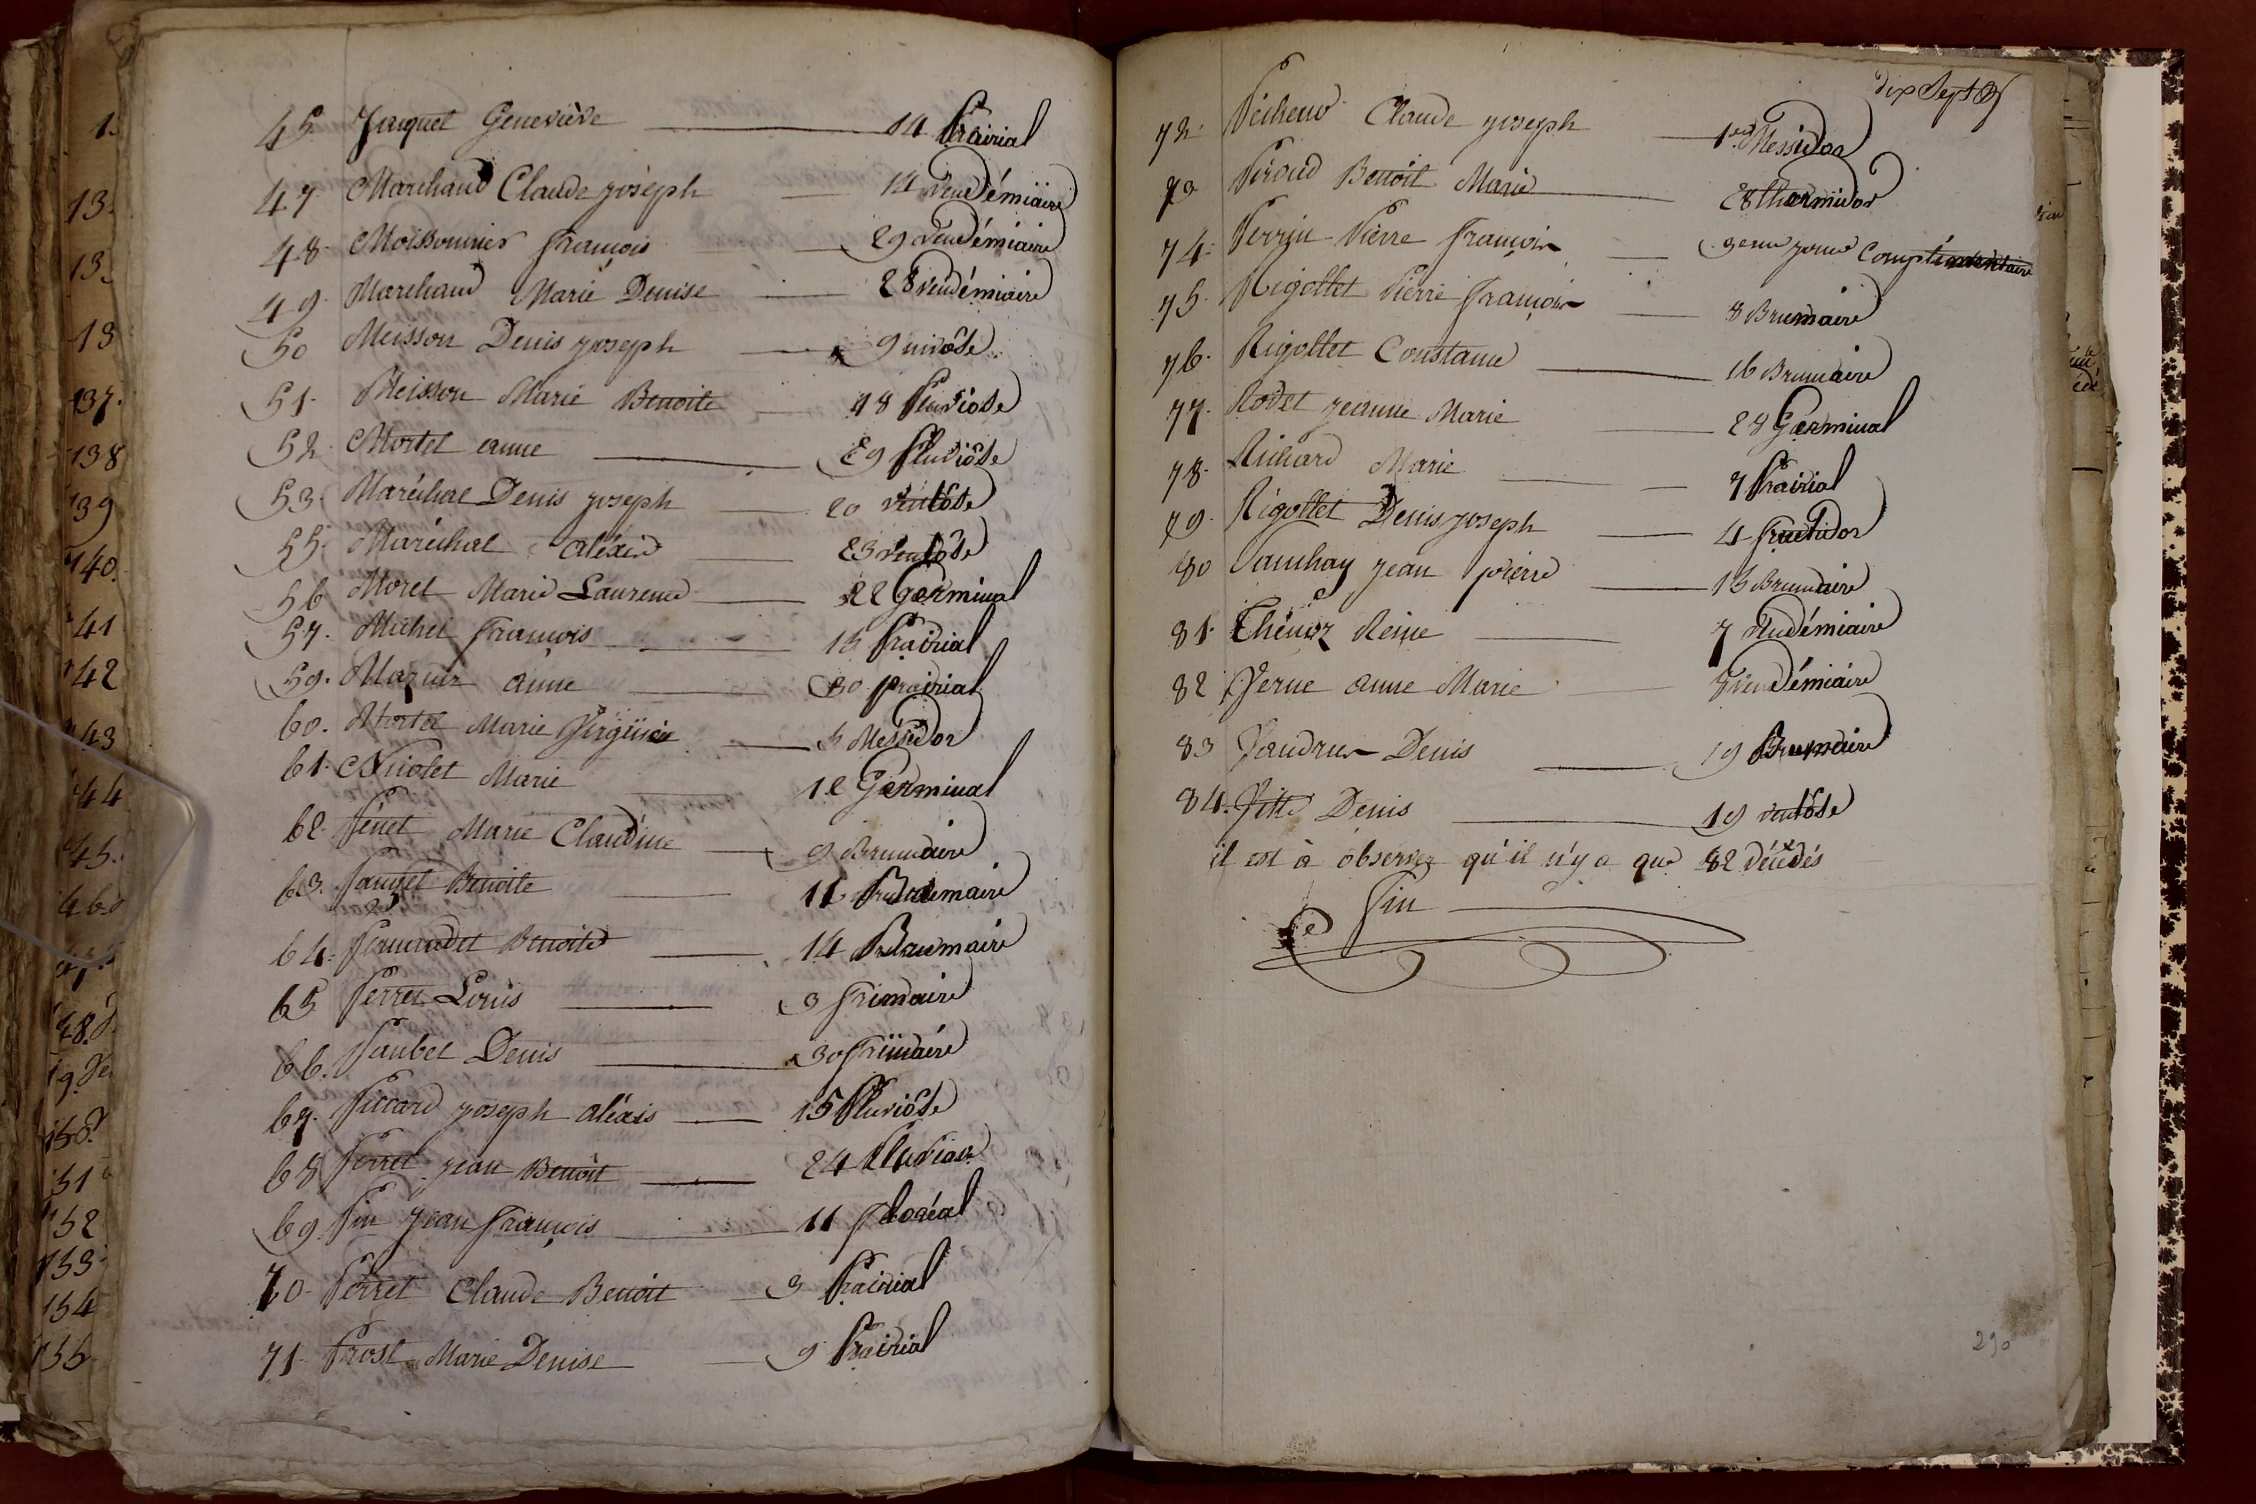 45. Jaquet Geneviève 14 Prairial
47. Marchand Claude joseph 14 vendémiaire
48. Moissonnier françois 29 vendémiaire
49. Marchand Marie Denise 28 vendémiaire
50 Meisson Denis joseph 9 nivôse
51. Meisson Marie Benoite 18 Pluviôse
52. Mortet anne 29 Pluviôse
53. Maréchal Denis joseph 20 ventôse
55. Maréchal aléxis 23 ventôse
56 Moret Marie Laurence 22 Germinal
57. Michel françois 15 Prairial
59. anne 30 prairial
60. Mortel Marie 5 Messidor
61. Niolet Marie 12 Germinal
62. Penet Marie Claudine 9 Brumaire
63. Benoite 11 Brumaire
64. Benoite 14 Brumaire
65 Perret Louis 3 frimaire
66. Paubel Denis 30 frimaire
67. Piccard joseph aléxis 15 Pluviôse
68 Perret jean Benoit 24 Pluviose
69. Pin jean françois 11 floréal
70. Perret Claude Benoit 3 Prairial
71. Prost Marie Denise 9 Prairial
dix Sept
72. Pécheux Claude joseph 1er Messidor
73 Piroud Benoit Marie 28 thermidor
74. Perrin Pierre françois 3eme jour Complémentaire
75. Rigollet Pierre françois 8 Brumaire
76. Rigollet Constance 16 Brumaire
77. Rodet jeanne Marie 28 Germinal
78. Richard Marie 7 Prairial
79. Rigollet Denis joseph 4 fructidor
80 jean pierre 15 Brumaire
81. Thénoz Reine 7 vendémiaire
82 Verne anne Marie vendémiaire
83 Vaudrus Denis 19 Brumaire
84. Denis 19 ventôse
il est à observer qu'il n'y a que 82 décédés
Fin
290
1.
13.
13.
13
137.
138
139
140.
41
142
143
44
45.
46.
151
152
153.
154
155